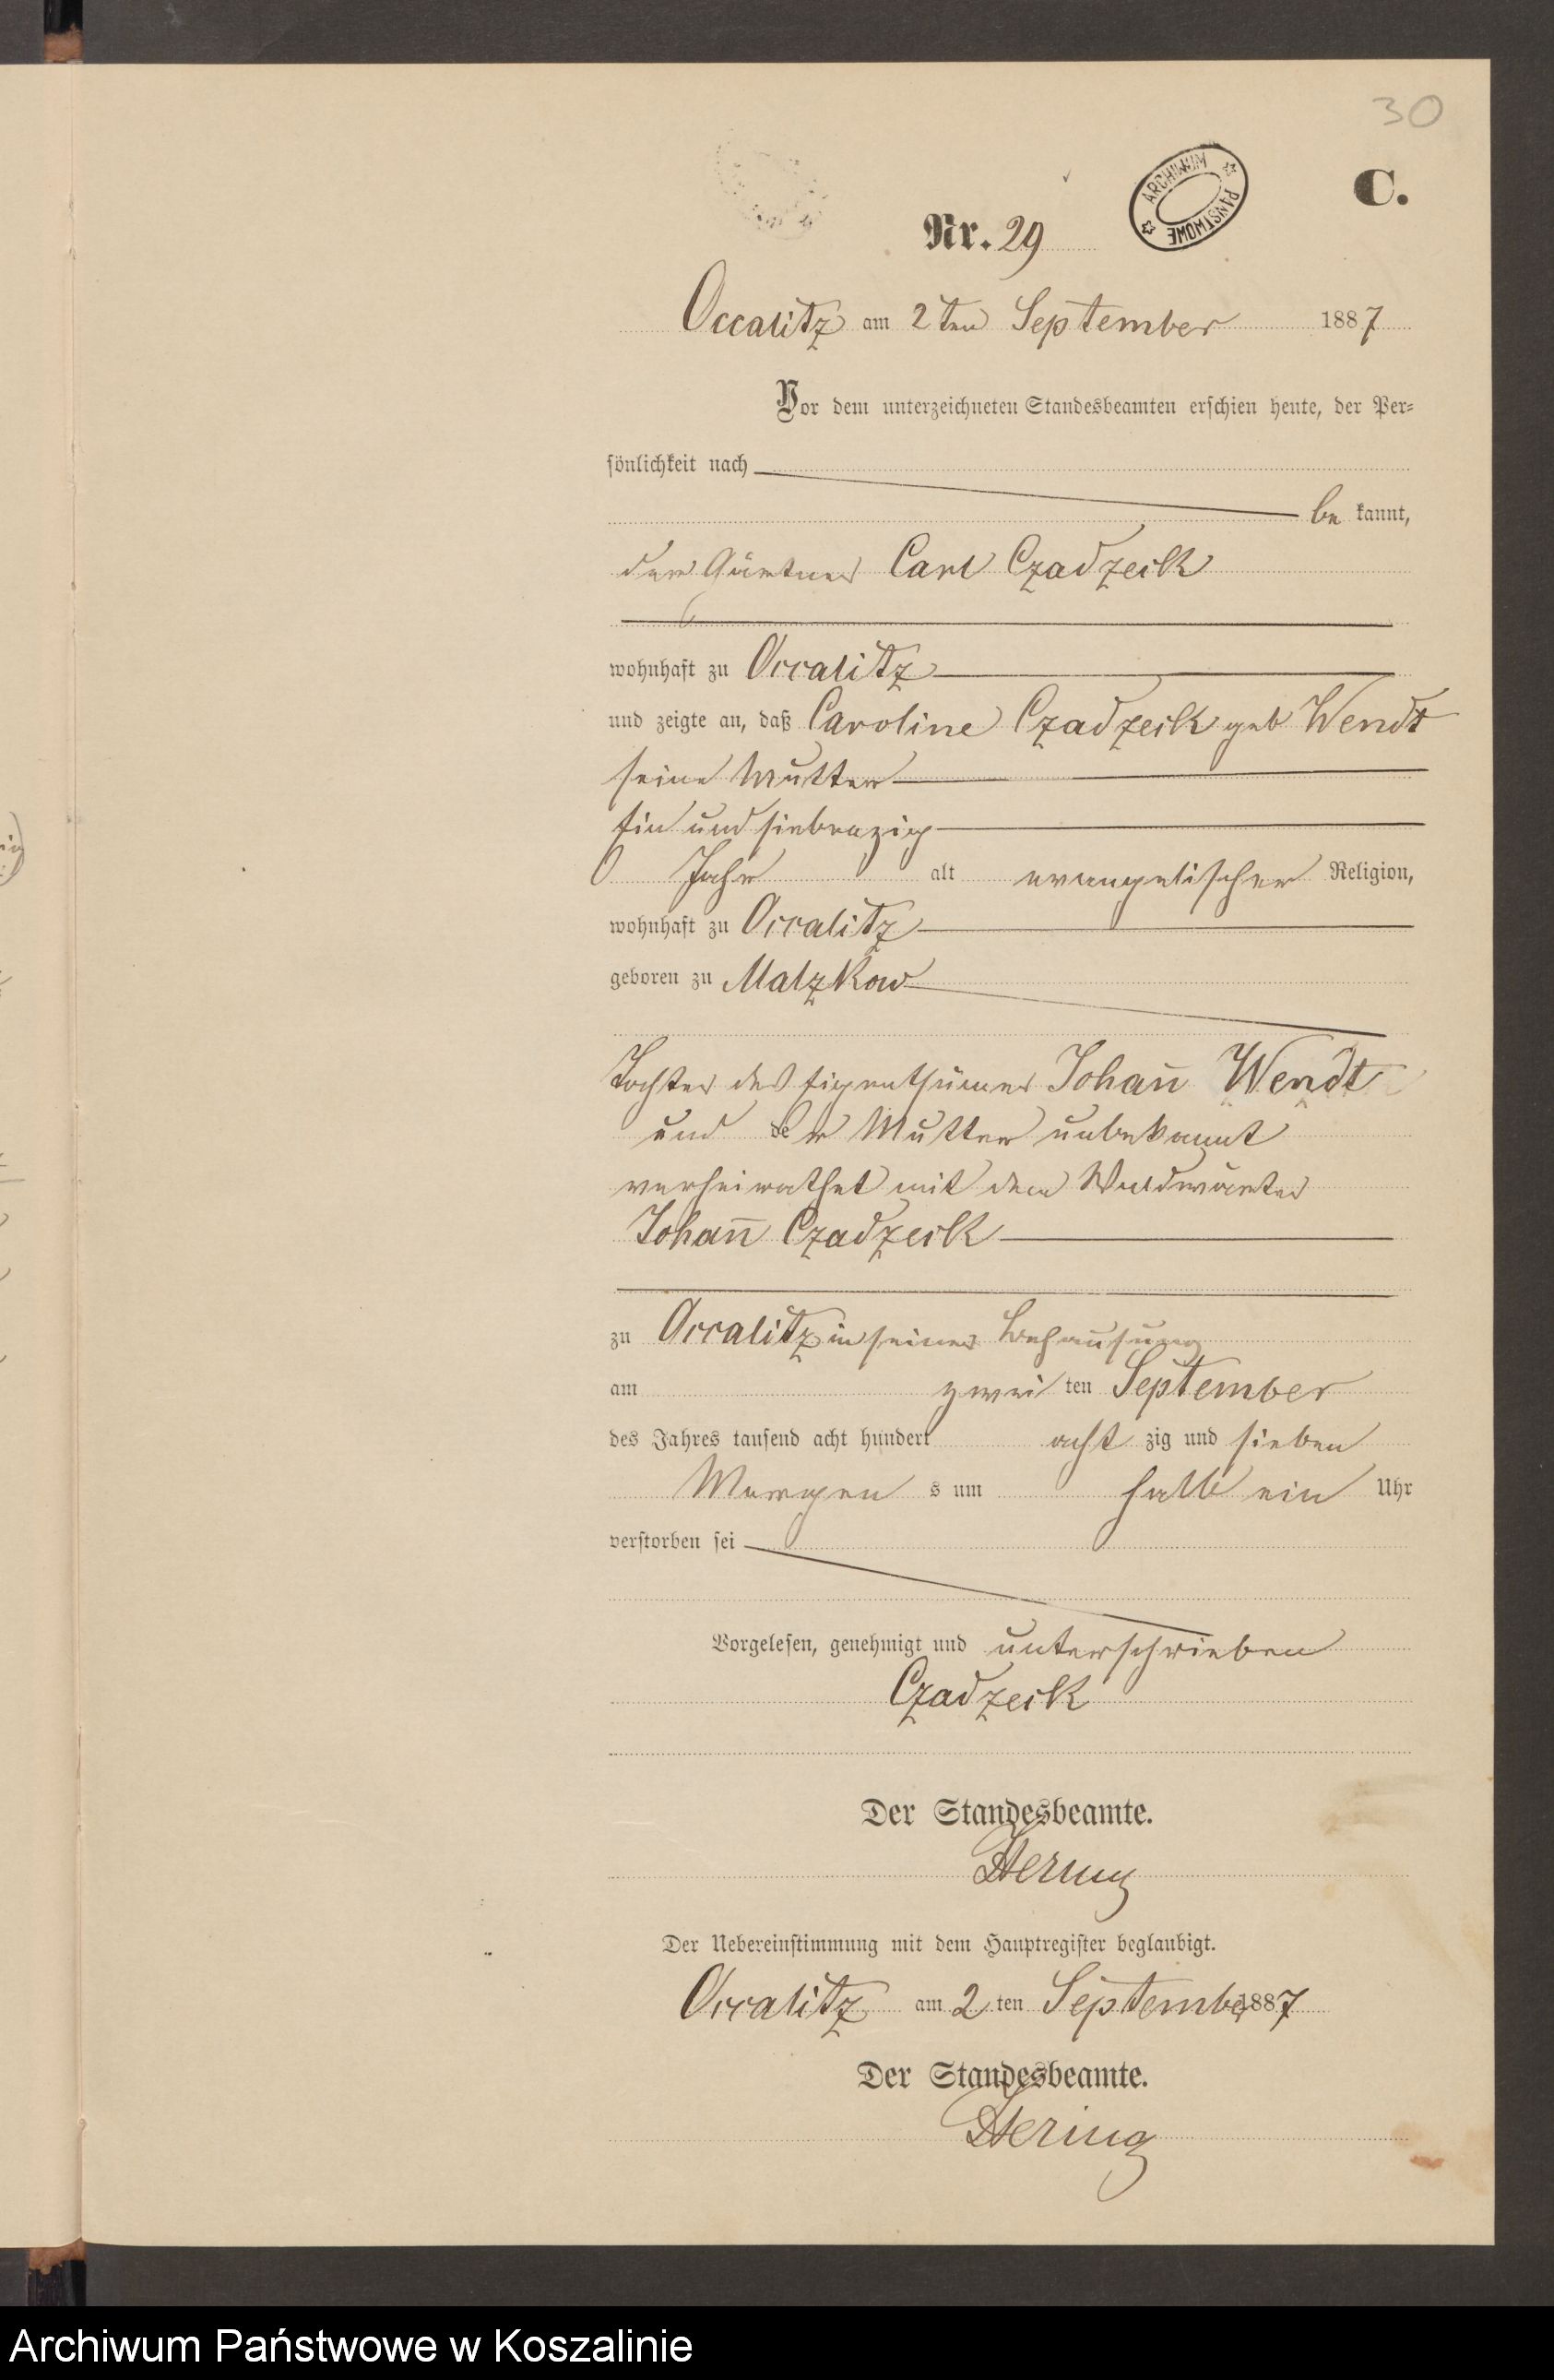 30
ARCHIWUM PAŃSTWOWE
C.
Nr. 29
Occalitz am 2ten September 1887
Vor dem unterzeichneten Standesbeamten erschien heute, der Per-
sönlichkeit nach
be kannt,
der Gärtner Carl Czadzeck
wohnhaft zu Occalitz
und zeigte an, daß Caroline Czadzeck geb Wendt
seine Mutter
Ein und siebenzig
Jahr alt evangelischer Religion,
wohnhaft zu Occalitz
geboren zu Malzkow
Tochter des Eigenthümer Johan̄ Wendt
und der Mutter unbekannt
verheirathet mit dem Waldwärter
Johan̄ Czadzeck
zu Occalitz in seiner Behausung
am zwei ten September
des Jahres tausend acht hundert acht zig und sieben
Morgen s um halb ein Uhr
verstorben sei
Vorgelesen, genehmigt und unterschrieben
Czadzeck
Der Standesbeamte.
Hering
Der Uebereinstimmung mit dem Hauptregister beglaubigt.
Occalitz am 2 ten September 1887
Der Standesbeamte.
Hering
Archiwum Państwowe w Koszalinie